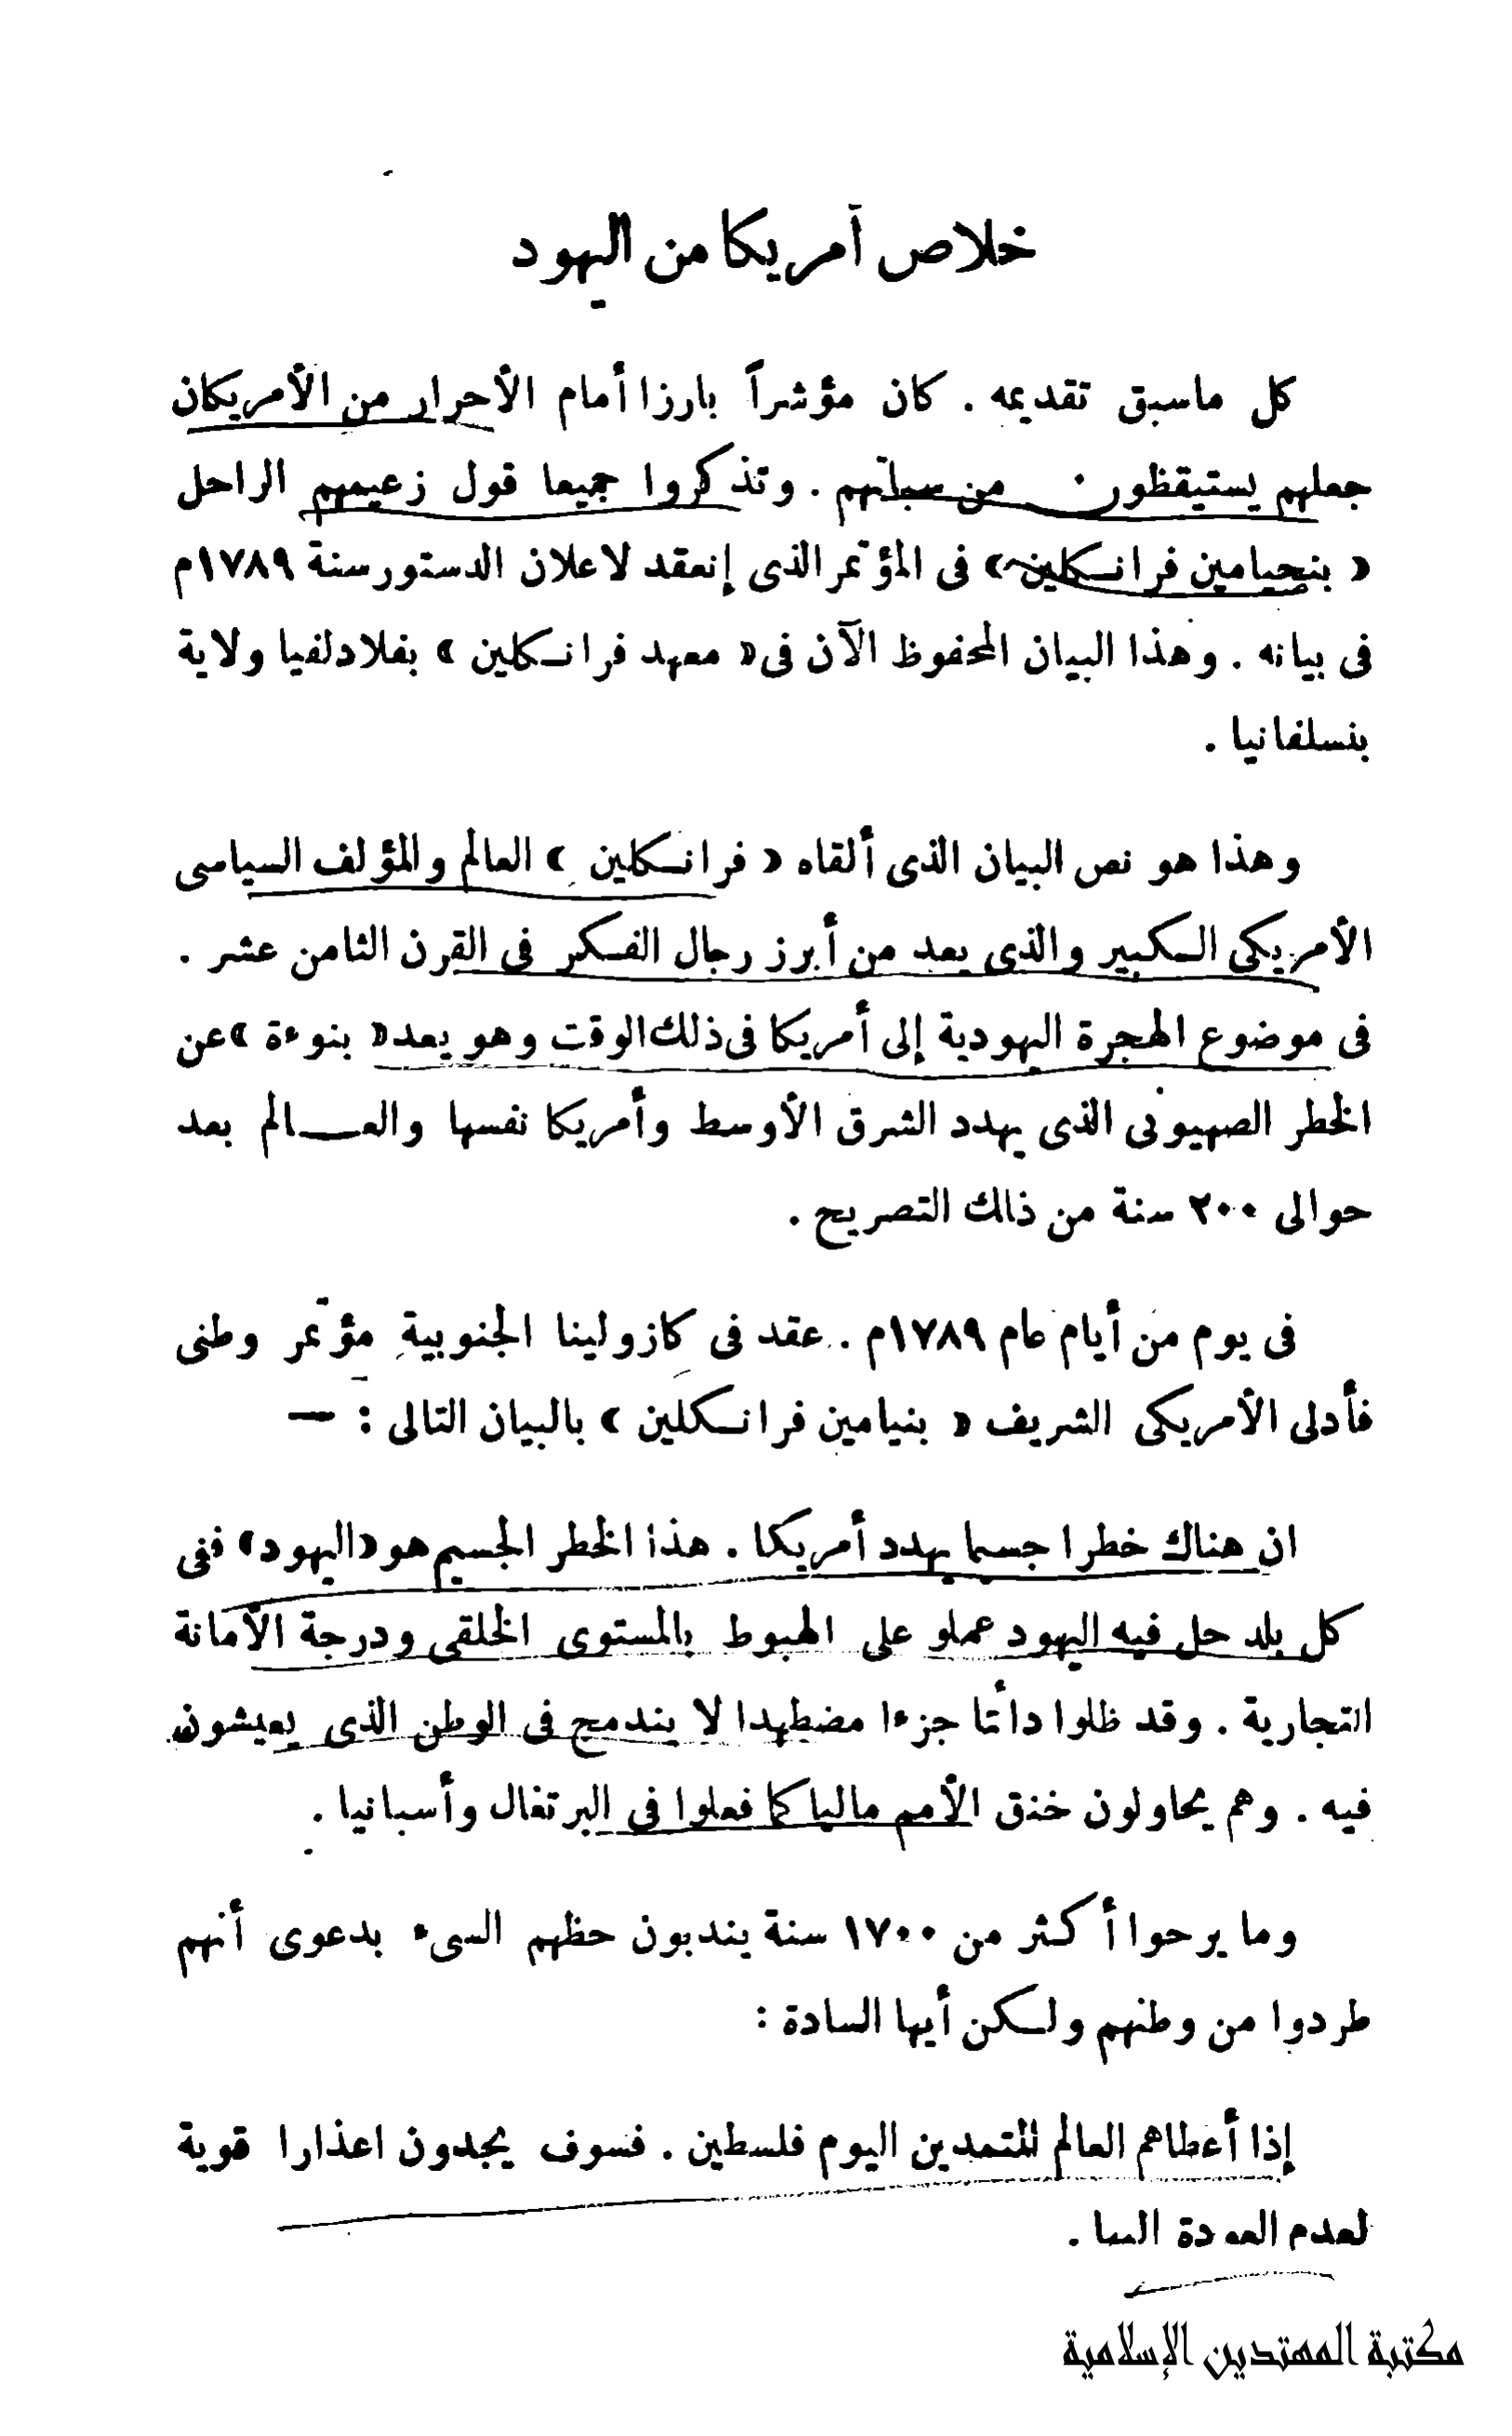 خلاص أمريكا من اليهود
كل ماسبق تقديمه . كان مؤشراً بارزا أمام الأحرار من الأمريكان
جعلهم يستيقظون من سباتهم . وتذكروا جميعا قول زعيمهم الراحل
« بنجيامين فرانكلين » فى المؤتمر الذى إنعقد لاعلان الدستور سنة ١٧٨٩م
فى بيانه . وهذا البيان المحفوظ الآن فى « معهد فرانكلين » بفلادلفيا ولاية
بنسلفانيا .
وهذا هو نص البيان الذى ألقاه « فرانكلين » العالم والمؤلف السياسى
الأمريكى الكبير والذى يعد من أبرز رجال الفكر فى القرن الثامن عشر .
فى موضوع الهجرة اليهودية إلى أمريكا فى ذلك الوقت وهو يعد « بنوءة » عن
الخطر الصهيونى الذى يهدد الشرق الأوسط وأمريكا نفسها والعـالم بعد
حوالى ٢٠٠ سنة من ذلك التصريح .
فى يوم من أيام عام ١٧٨٩م . عقد فى كازولينا الجنوبية مؤتمر وطنى
فأدلى الأمريكى الشريف « بنيامين فرانكلين » بالبيان التالى : —
ان هناك خطرا جسيما يهدد أمريكا . هذا الخطر الجسيم هو « اليهود » ففى
كل بلد حل فيه اليهود عملو على الهبوط بالمستوى الخلقى ودرجة الأمانة
التجارية . وقد ظلوا دائما جزءا مضطهدا لا يندمج فى الوطن الذى يعيشون
فيه . وهم يحاولون خنق الأمم ماليا كما فعلوا فى البرتغال وأسبانيا .
وما برحوا أكثر من ١٧٠٠ سنة يندبون حظهم السىء بدعوى أنهم
طردوا من وطنهم ولكن أيها السادة :
إذا أعطاهم العالم المتمدين اليوم فلسطين . فسوف يجدون اعذارا قوية
لعدم العودة اليها .
مكتبة المهتدين الإسلامية